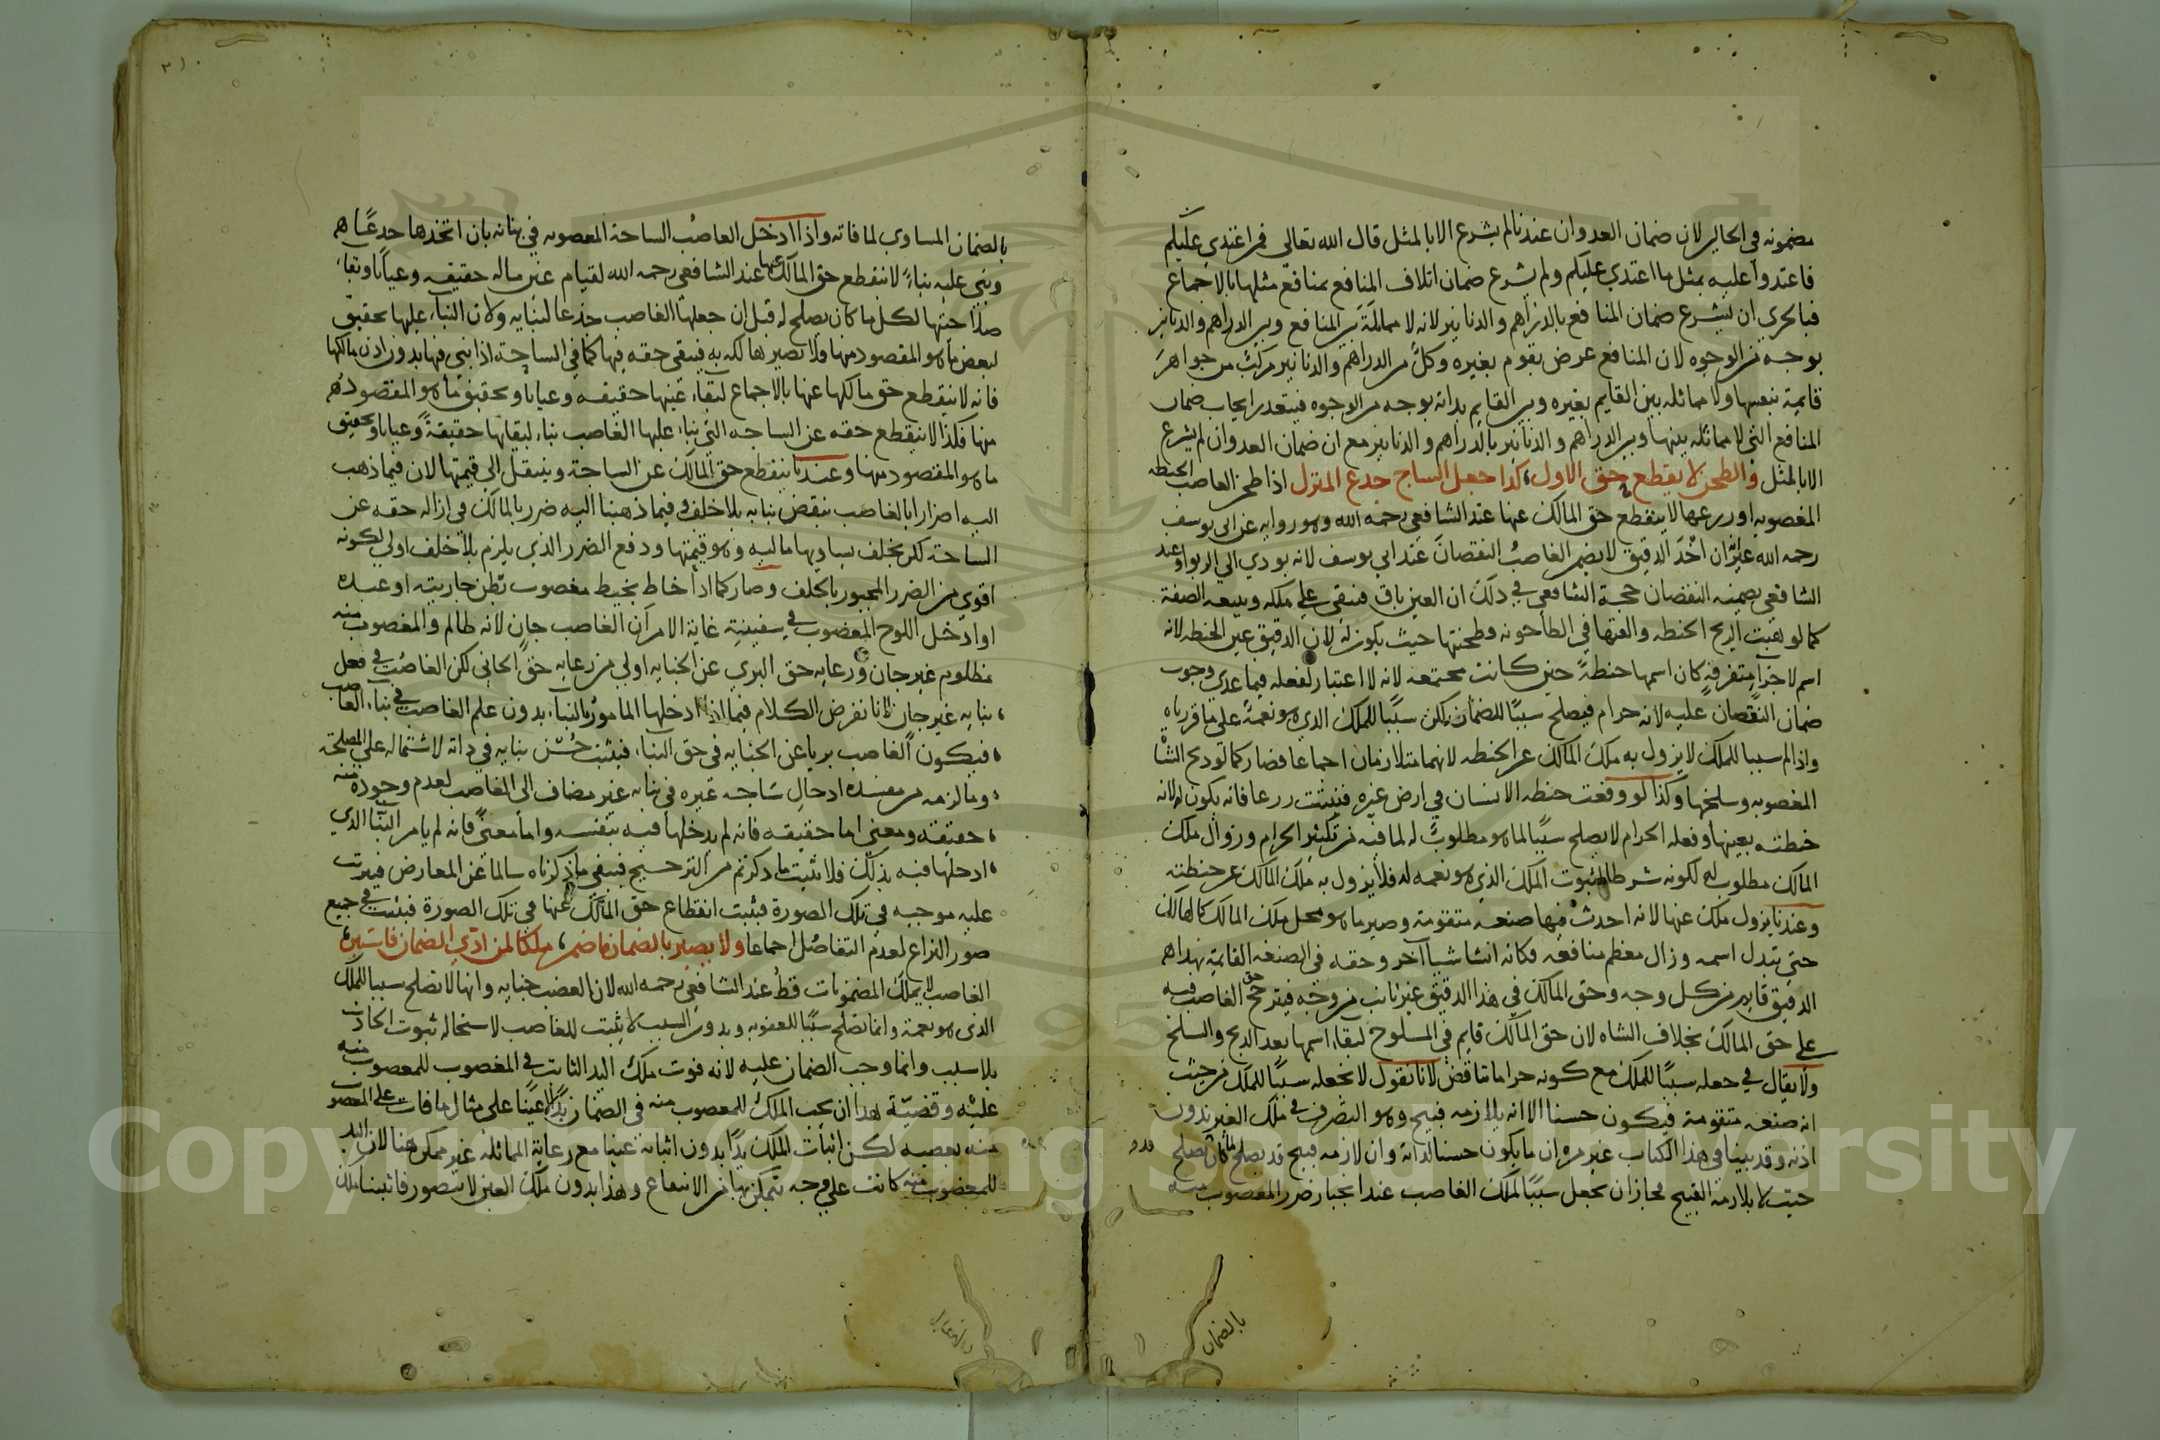 مضمونه في الحالين لان ضمان العدوان عندنا لم يشرع الا بالمثل قال الله تعالى فمن اعتدي عليكم
فاعتدوا عليه بمثل ما اعتدي عليكم ولم يشرع ضمان اتلاف المنافع بمنافع مثلها بالاجماع
فبالحري ان لا يشرع ضمان المنافع بالدراهم والدنانير لانه لا مماثلة بين المنافع وبين الدراهم والدنانير
بوجه من الوجوه لان المنافع عرض يقوم بغيره وكل من الدراهم والدنانير مركب من جواهر
قايمة بنفسها ولا مماثله بين القايم بغيره وبين القايم بذاته بوجه من الوجوه فيتعذر ايجاب ضمان
المنافع التي لا مماثله بينها وبين الدراهم والدنانير بالدراهم والدنانير مع ان ضمان العدوان لم يشرع
الا بالمثل والطحن لا يقطع حق الاول كذا جعل الساج جذع المنزل اذا طحن الغاصب الحنطه
المغصوبه او زرعها لا ينقطع حق المالك عنها عند الشافعي رحمه الله وهو روايه عن ابي يوسف
رحمه الله غير ان اخذ الدقيق لا يضمن الغاصب النقصان عند ابي يوسف لانه يودي الي الربوا وعند
الشافعي يضمنه النقصان حجة الشافعي في ذلك ان العين باق فيبقي علي ملكه وتبعه الصفة
كما لو هبت الريح الحنطه والقتها في الطاحونه وطحنتها حيث يكون له لان الدقيق عين الحنطه لانه
اسم لاجزا متفرقه كان اسمها حنطة حين كانت مجتمعه لانه لا اعتبار لفعله فيما عدي وجوب
ضمان النقصان عليه لانه حرام فيصلح سببا للضمان لكن سببا للملك الذي هو نعمة على ما قررناه
واذا لم سببا للملك لا يزول به ملك المالك عن الحنطه لانهما متلازمان اجماعا فصار كما لو ذبح الشاة
المغصوبه وسلخها وكذا لو وقعت حنطه الانسان في ارض غيره فنبتت زرعا فانه يكون له لانه
حنطته بعينها وفعله الحرام لا يصلح سببا لما هو مطلوب له لما فيه من تكثير الحرام وزوال ملك
المالك مطلوب له لكونه شرطا لثبوت الملك الذي هو نعمه له فلا يزول به ملك المالك عن حنطته
وعندنا يزول ملكه عنها لانه احدث فيها صنعه متقومة وصير ما هو محل ملك المالك كالهالك
حتى يتبدل اسمه وزال معظم منافعه فكانه انشا شيا آخر وحقه في الصنعه القايمة بهذا
الدقيق قايم من كل وجه وحق المالك في هذا الدقيق غير ثابت من وجه فيترجح حق الغاصب فيه
علي حق المالك بخلاف الشاه لان حق المالك قايم في المسلوح لبقاء اسمها بعد الذبح والسلخ
ولا يقال في جعله سببا للملك مع كونه حراما تناقض لانا نقول لا نجعله سببا للملك من حيث
انه صنعه متقومة فيكون حسنا الا انه يلازمه قبيح وهو التصرف في ملك الغير بدون
اذنه وقد بينا في هذا الكتاب غير مره ان ما يكون حسنا لذاته وان لازمه قبيح قد يصلح لما كان يصلح
حيث لا يلازمه القبيح فجاز ان يجعل سببا لملك الغاصب عند انجبار ضرر المغصوب منه
بالضمان
بالضمان المساوي لما فاته واذا ادخل الغاصب الساحة المغصوبه في بنائه بان اتخذها جذعا
وبني عليه بناء لا ينقطع حق المالك عنها عند الشافعي رحمه الله لقيام عين ماله حقيقه وعيانا وبقاء
صلاحيتها لكل ما كان يصلح له قبل ان جعلها الغاصب جذعا لبنايه ولان البناء عليها تحقيق
لبعض ما هو المقصود منها ولا تصير هالكه به فيبقي حقه فيها كما في الساحة اذا بني فيها بدون اذن مالكها
فانه لا ينقطع حق مالكها عنها بالاجماع لبقاء عينها حقيقه وعيانا وتحقيق ما هو المقصود
منها فكذا لا ينقطع حقه عن الساجه التي بناء عليها الغاصب بناء لبقائها حقيقة وعيانا وتحقيق
ما هو المقصود منها وعندنا ينقطع حق المالك عن الساحة وينتقل الي قيمتها لان فيما ذهب
اليه اضرارا بالغاصب بنقض بنايه بلا خلف وفيما ذهبنا اليه ضرر بالمالك في ازاله حقه عن
الساحة لكن بخلف يساويها ماليه وهو قيمتها ودفع الضرر الذي يلزم بلا خلف اولي لكونه
اقوي من الضرر المجبور بالخلف وصار كما اذا خاط بخيط مغصوب بطن جاريته او عبده
او ادخل اللوح المغصوب في سفينته غاية الامر ان الغاصب جان لانه ظالم والمغصوب منه
مظلوم غير جان ورعايه حق البري عن الجنايه اولي من رعايه حق الجاني لكن الغاصب في فعل
بنايه غير جان لانا نفرض الكلام فيما اذا ادخلها المامور بالبناء بدون علم الغاصب في بناء الغاصب
فيكون الغاصب بريا عن الجنايه في حق البناء فيثبت حسن بنايه في ذاته لاشتماله على المصلحة
وما لزمه من مفسده ادخال ساجه غيره في بنايه غير مضاف الى الغاصب لعدم وجوده منه
حقيقته ومعنى اما حقيقه فانه لم يدخلها فيه بنفسه واما معنى فانه لم يامر البنا الذي
ادخلها فيه بذلك فلا يثبت ما ذكرتم من الترجيح فيبقي ما ذكرناه سالما عن المعارض فيترتب
عليه موجبه في تلك الصورة فيثبت انقطاع حق المالك عنها في تلك الصورة فيثبت في جميع
صور النزاع لعدم التفاضل اجماعا ولا يصير بالضمان ما ضمن ملكا لمن ادي الضمان فاستبن
الغاصب لا يملك المضمونات قط عند الشافعي رحمه الله لان الغصب جنايه وانها لا تصلح سببا للملك
الذي هو نعمة وانما تصلح سببا للعقوبه وبدون السبب لا يثبت للغاصب لاستحاله ثبوت الحادث
بلا سبب وانما وجب الضمان عليه لانه فوت ملك اليد الثابت في المغصوب للمغصوب منه
عليه وقضية هذا ان يجب الملك للمغصوب منه في الضمان يدا لا عينا على مثال ما فات على المغصوب
منه بغصبه لكن اثبات الملك يدا بدون اثباته عينا مع رعاية المماثله غير ممكن هنا لان اليد
للمغصوب منه كانت علي وجه يتمكن بها من الانتفاع وهذا بدون ملك العين لا يتصور فاثبتنا ملك